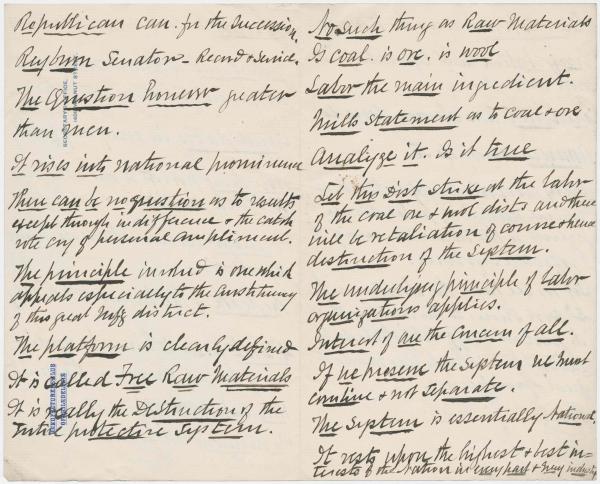 Republican can. for the Succession.
Reyburn Senator - Record & Service.
The Question however greater
than men.
It rises into national prominence
There can be no question as to results
except through indifference & the catch
vote cry of personal compliment.
The principle involved is one which
appeals especially to the constituency
of this great Mfg district.
The platform is clearly defined
It is called Free Raw Materials
It is really the Destruction of the
entire protective System.
No such thing as Raw Materials
Is coal. is ore. is wool
Labor the main ingredient.
Mills Statement as to coal & ore
Analyze it. Is it true
Let this Dist Strike at the labor
of the coal ore & wool dists and there
will be retaliation of course & hence
distruction of the System.
The underlying principle of labor
organizations applies.
Interest of one the concern of all.
If we preserve the System we must
combine & not separate.
The System is essentially National.
It rests upon the highest & best in-
terests of the Nation in every part & every industry
MANUFACTURERS CLUB
OF PHILADELPHIA
SECRETARY'S OFFICE